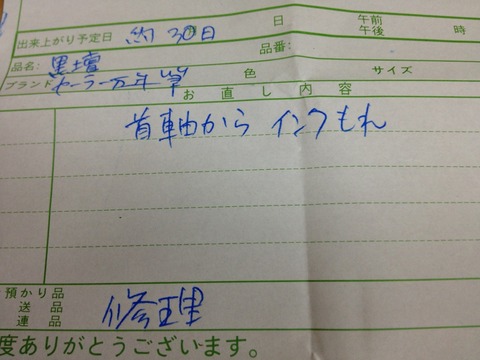 出来上がり予定日 約30日 日 午前 午後 時
品名: 黒壇 品番:
ブランド セーラー万年筆 色 サイズ
お直し内容
首軸から インクもれ
預かり品
送品 修理
連品
度ありがとうございます。